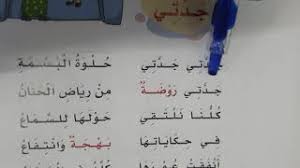 جَدَّتِي
جَدَّتِي جَدَّتِي حُلْوَةُ الْبَسْمَةِ
جَدَّتِي رَوْضَةٌ مِنْ رِيَاضِ الْحَنَانِ
كُلُّنَا نَلْتَقِي حَوْلَهَا لِلسَّمَاعِ
فِي حِكَايَاتِهَا بَهْجَةٌ وَانْتِفَاعِ
أَنْفَقَتْ عُمْرَهَا